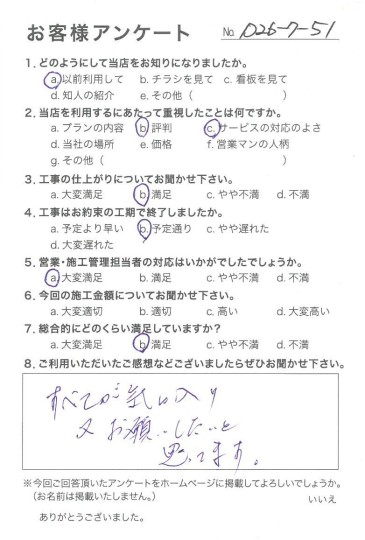 お客様アンケート No. D26-7-51
1. どのようにして当店をお知りになりましたか。
a. 以前利用して b. チラシを見て c. 看板を見て
d. 知人の紹介 e. その他（ ）
2. 当店を利用するにあたって重視したことは何ですか。
a. プランの内容 b. 評判 c. サービスの対応のよさ
d. 当社の場所 e. 価格 f. 営業マンの人柄
g. その他（ ）
3. 工事の仕上がりについてお聞かせ下さい。
a. 大変満足 b. 満足 c. やや不満 d. 不満
4. 工事はお約束の工期で終了しましたか。
a. 予定より早い b. 予定通り c. やや遅れた
d. 大変遅れた
5. 営業・施工管理担当者の対応はいかがでしたでしょうか。
a. 大変満足 b. 満足 c. やや不満 d. 不満
6. 今回の施工金額についてお聞かせ下さい。
a. 大変適切 b. 適切 c. 高い d. 大変高い
7. 総合的にどのくらい満足していますか?
a. 大変満足 b. 満足 c. やや不満 d. 不満
8. ご利用いただいたご感想などございましたらぜひお聞かせ下さい。
すべてが気に入り
又お願いしたいと
思ってます。
※今回ご回答頂いたアンケートをホームページに掲載してよろしいでしょうか。
（お名前は掲載いたしません。） いいえ
ありがとうございました。